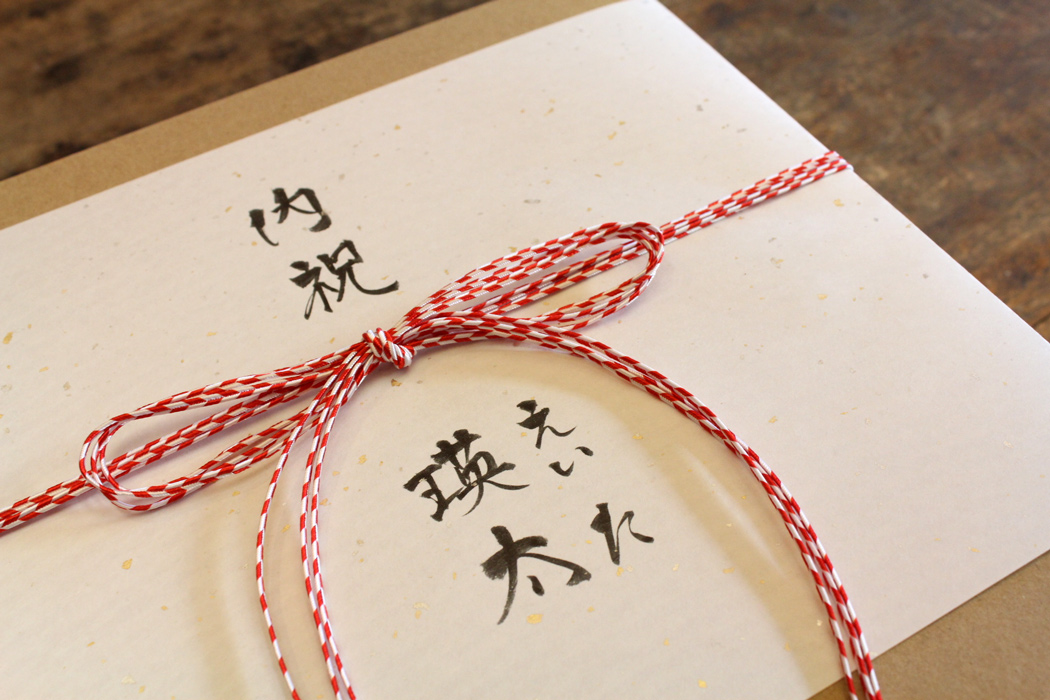 内祝
瑛太
えいた